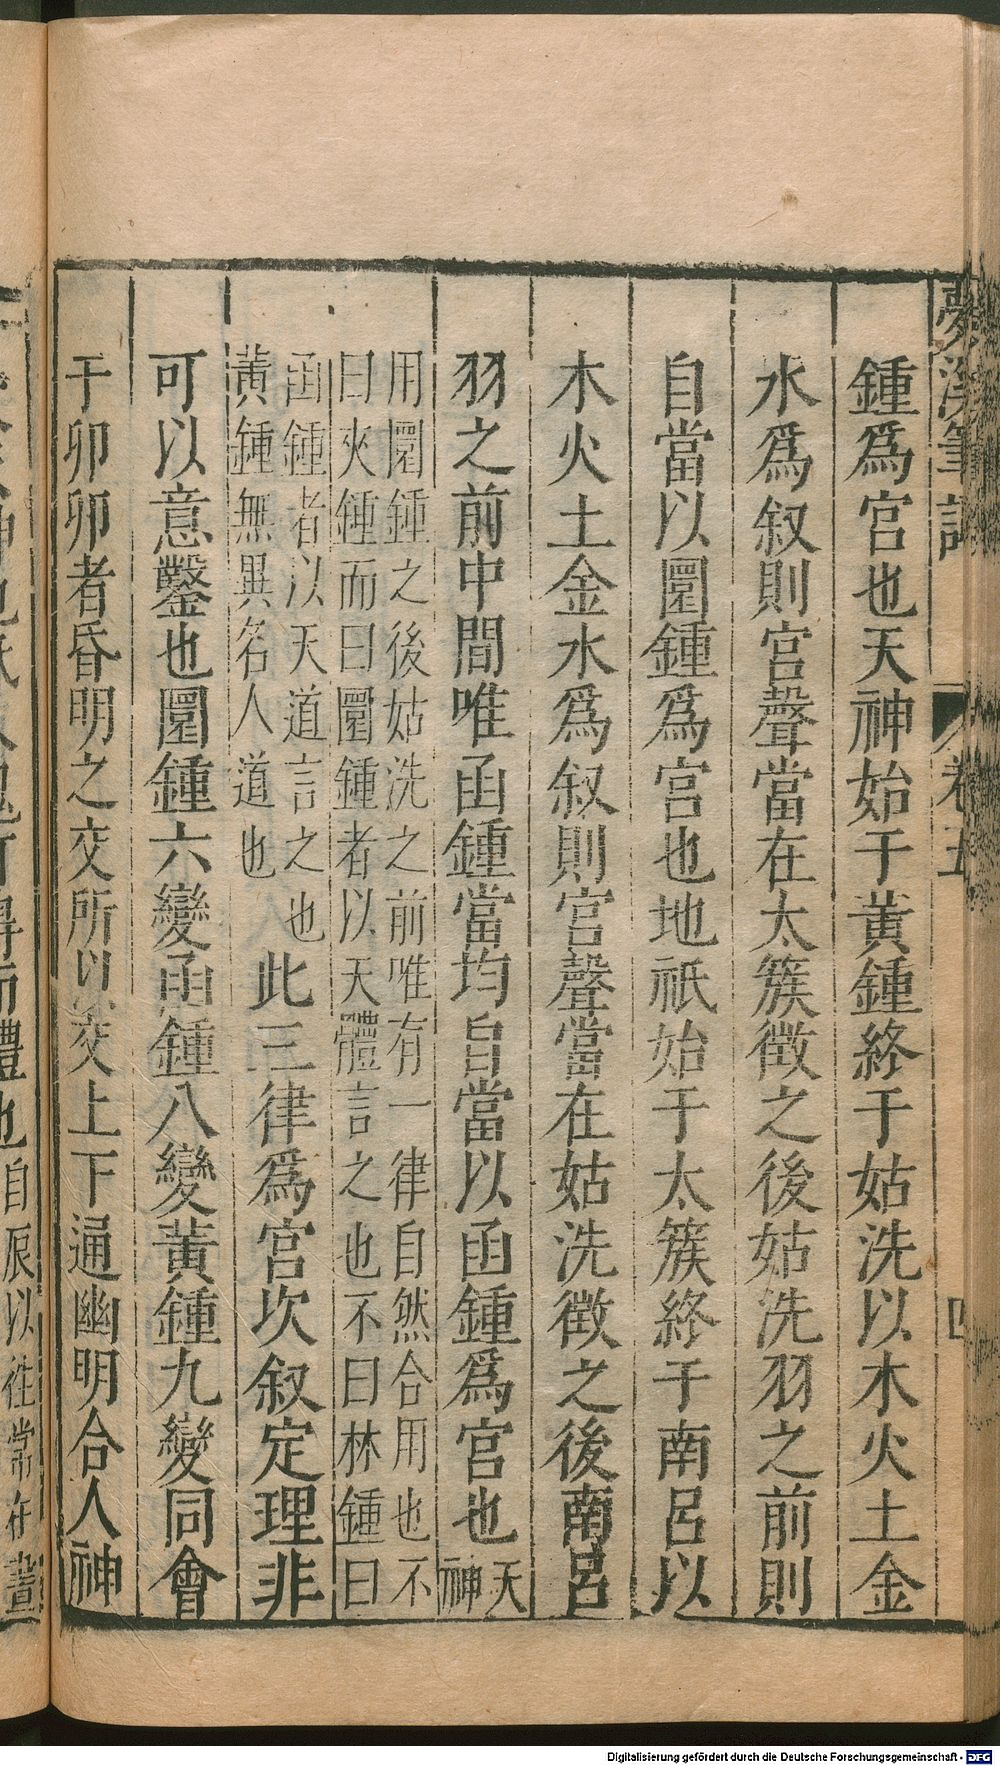 夢溪筆談 卷五
鍾爲宮也天神始于黃鍾終于姑洗以木火土金
水爲叙則宮聲當在太簇徵之後姑洗羽之前則
自當以圜鍾爲宮也地祇始于太簇終于南呂以
木火土金水爲叙則宮聲當在姑洗徵之後南呂
羽之前中間唯函鍾當均自當以函鍾爲宮也天神
用圜鍾之後姑洗之前唯有一律自然合用也不
曰夾鍾而曰圜鍾者以天體言之也不曰林鍾曰
函鍾者以天道言之也
黃鍾無異名人道也
此三律爲宮次叙定理非
可以意鑿也圜鍾六變函鍾八變黃鍾九變同會
于卯卯者昏明之交所以交上下通幽明合人神
禮也自辰以往常在晝
Digitalisierung gefördert durch die Deutsche Forschungsgemeinschaft - DFG